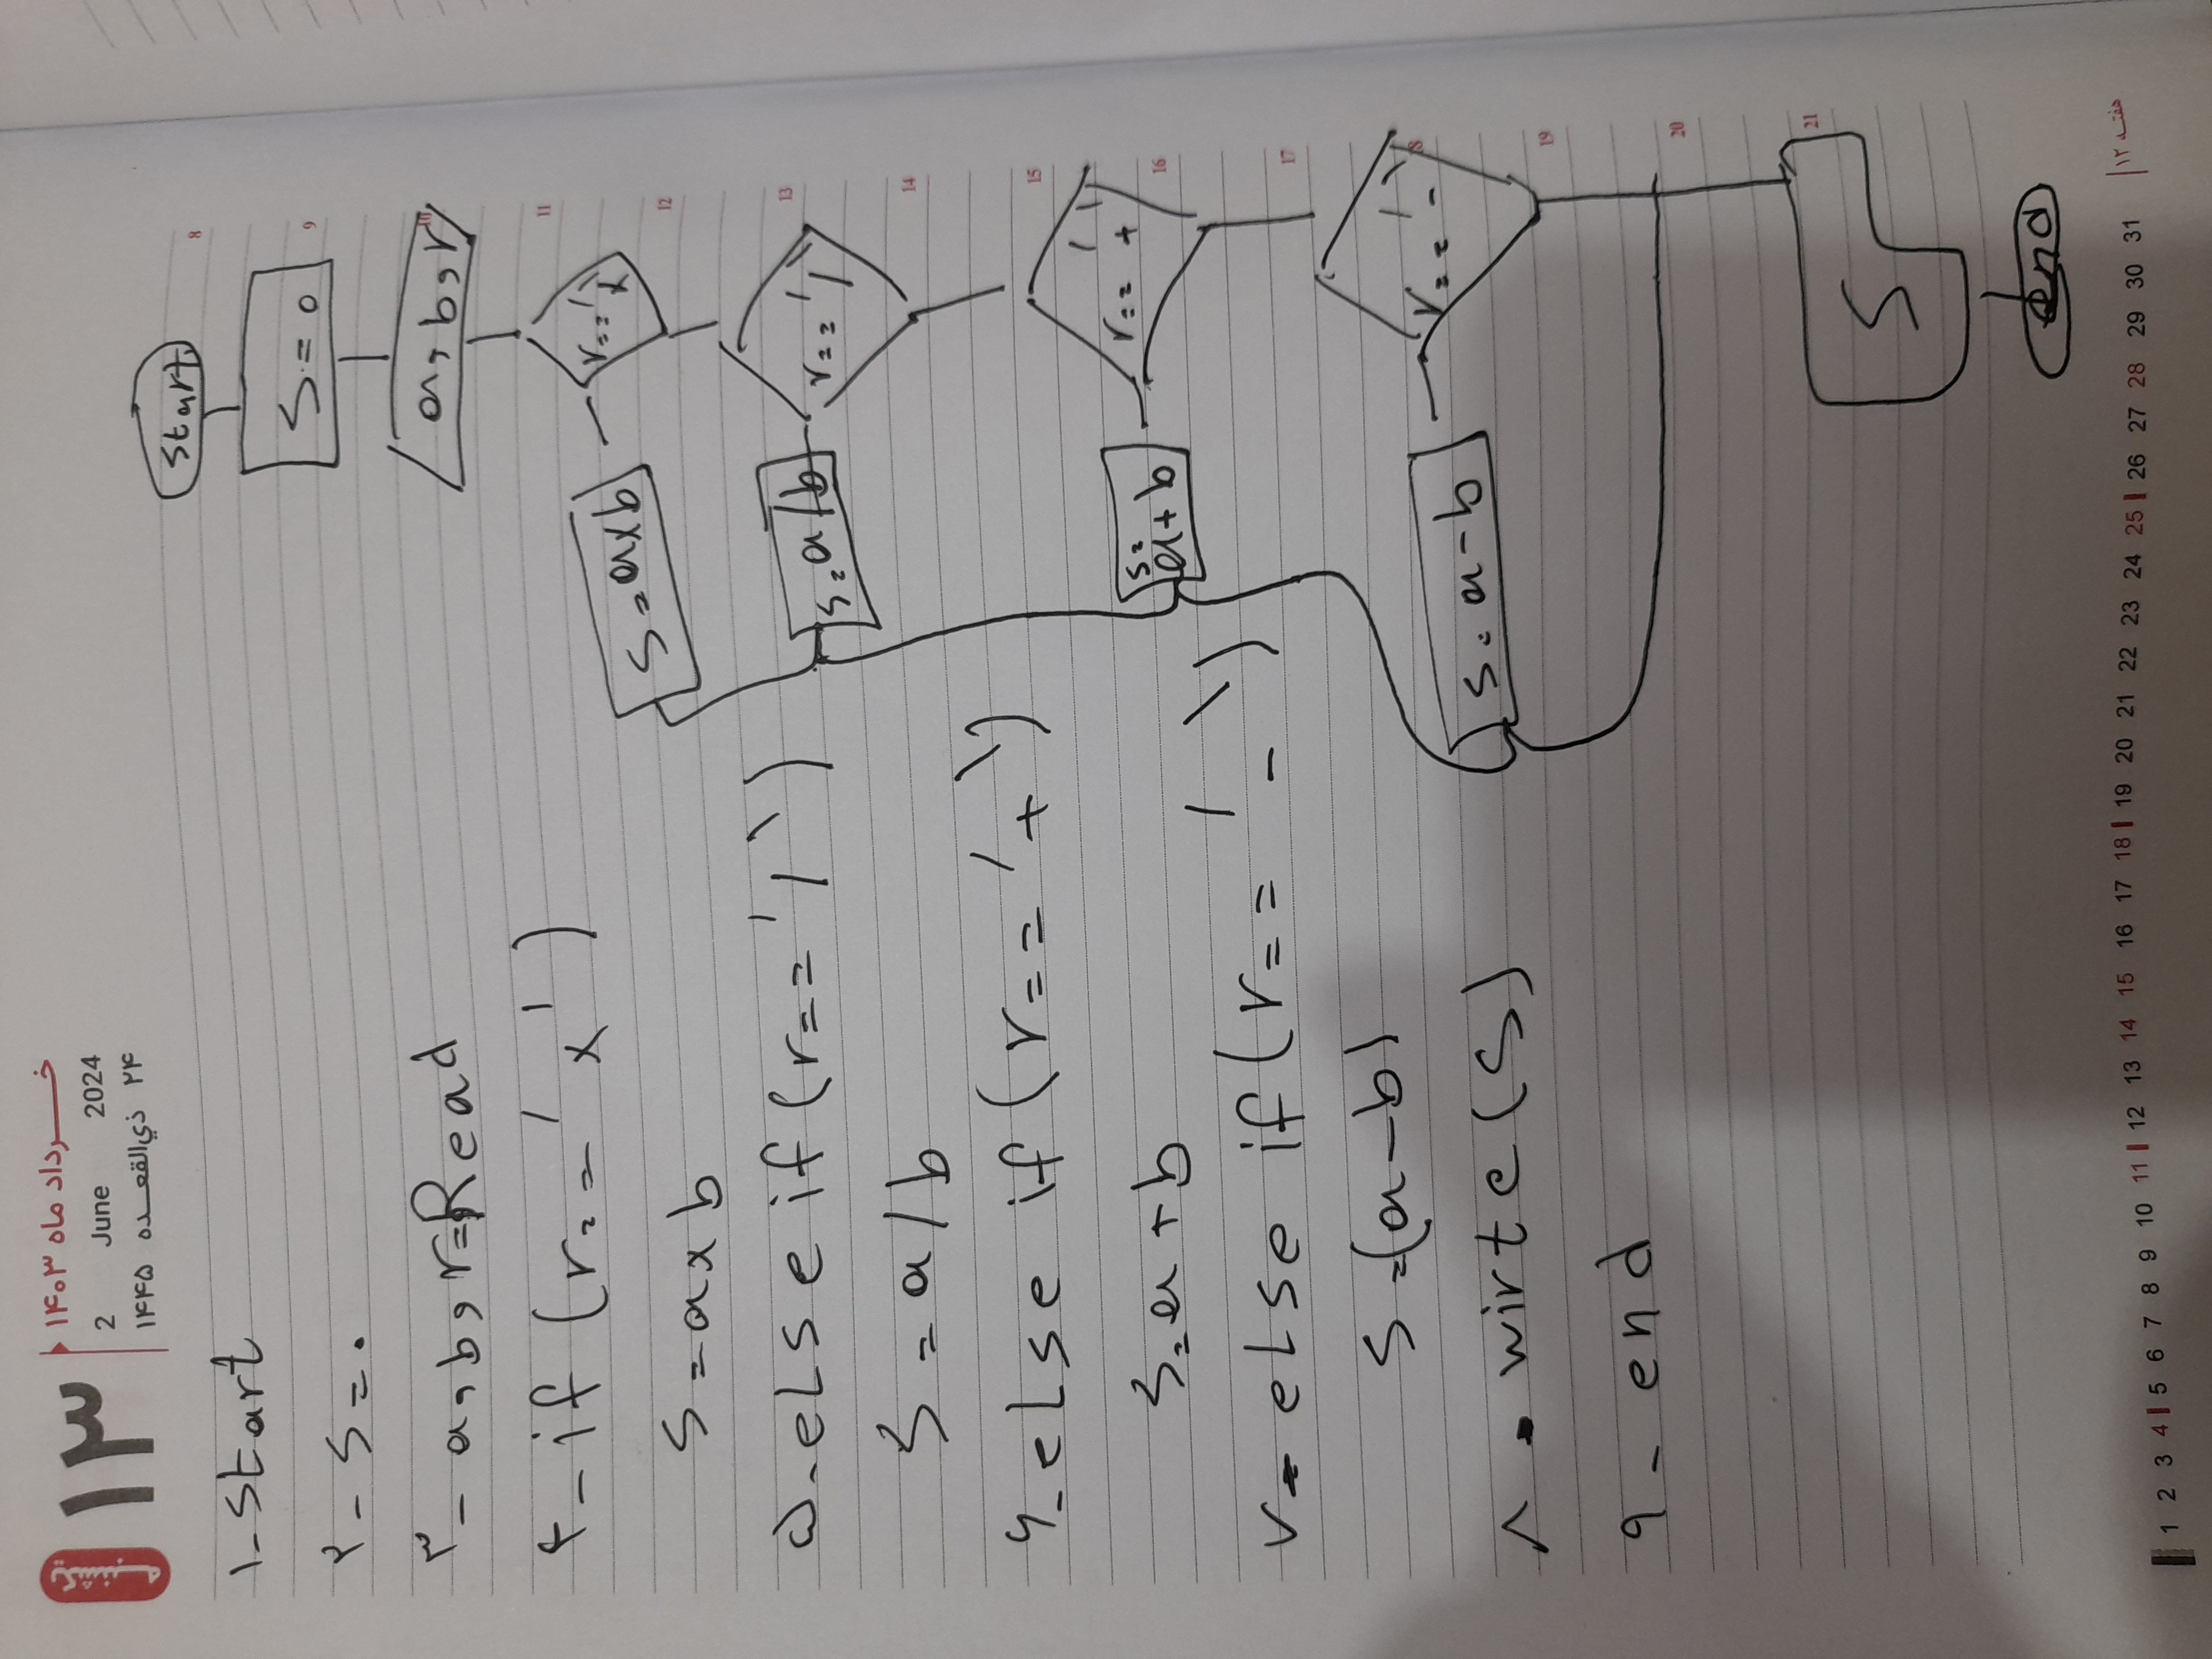 یکشنبه
۱۳
خرداد ماه ۱۴۰۳
2 June 2024
۲۴ ذي‌القعده ۱۴۴۵
۱- Start
۲- S = ۰
۳- a, b, r = Read
۴- if (r == 'x')
S = a x b
۵- else if (r == '/')
S = a / b
۶- else if (r == '+')
S = a + b
۷- else if (r == '-')
S = (a - b)
۸- wirte (S)
۹- end
start
S = 0
a, b, r
r == 'x'
S = a x b
r == '/'
S = a / b
r == '+'
S = a + b
r == '-'
S = a - b
S
end
8
9
10
11
12
13
14
15
16
17
18
19
20
21
1 2 3 4 5 6 7 8 9 10 11 12 13 14 15 16 17 18 19 20 21 22 23 24 25 26 27 28 29 30 31
هفته ۱۲